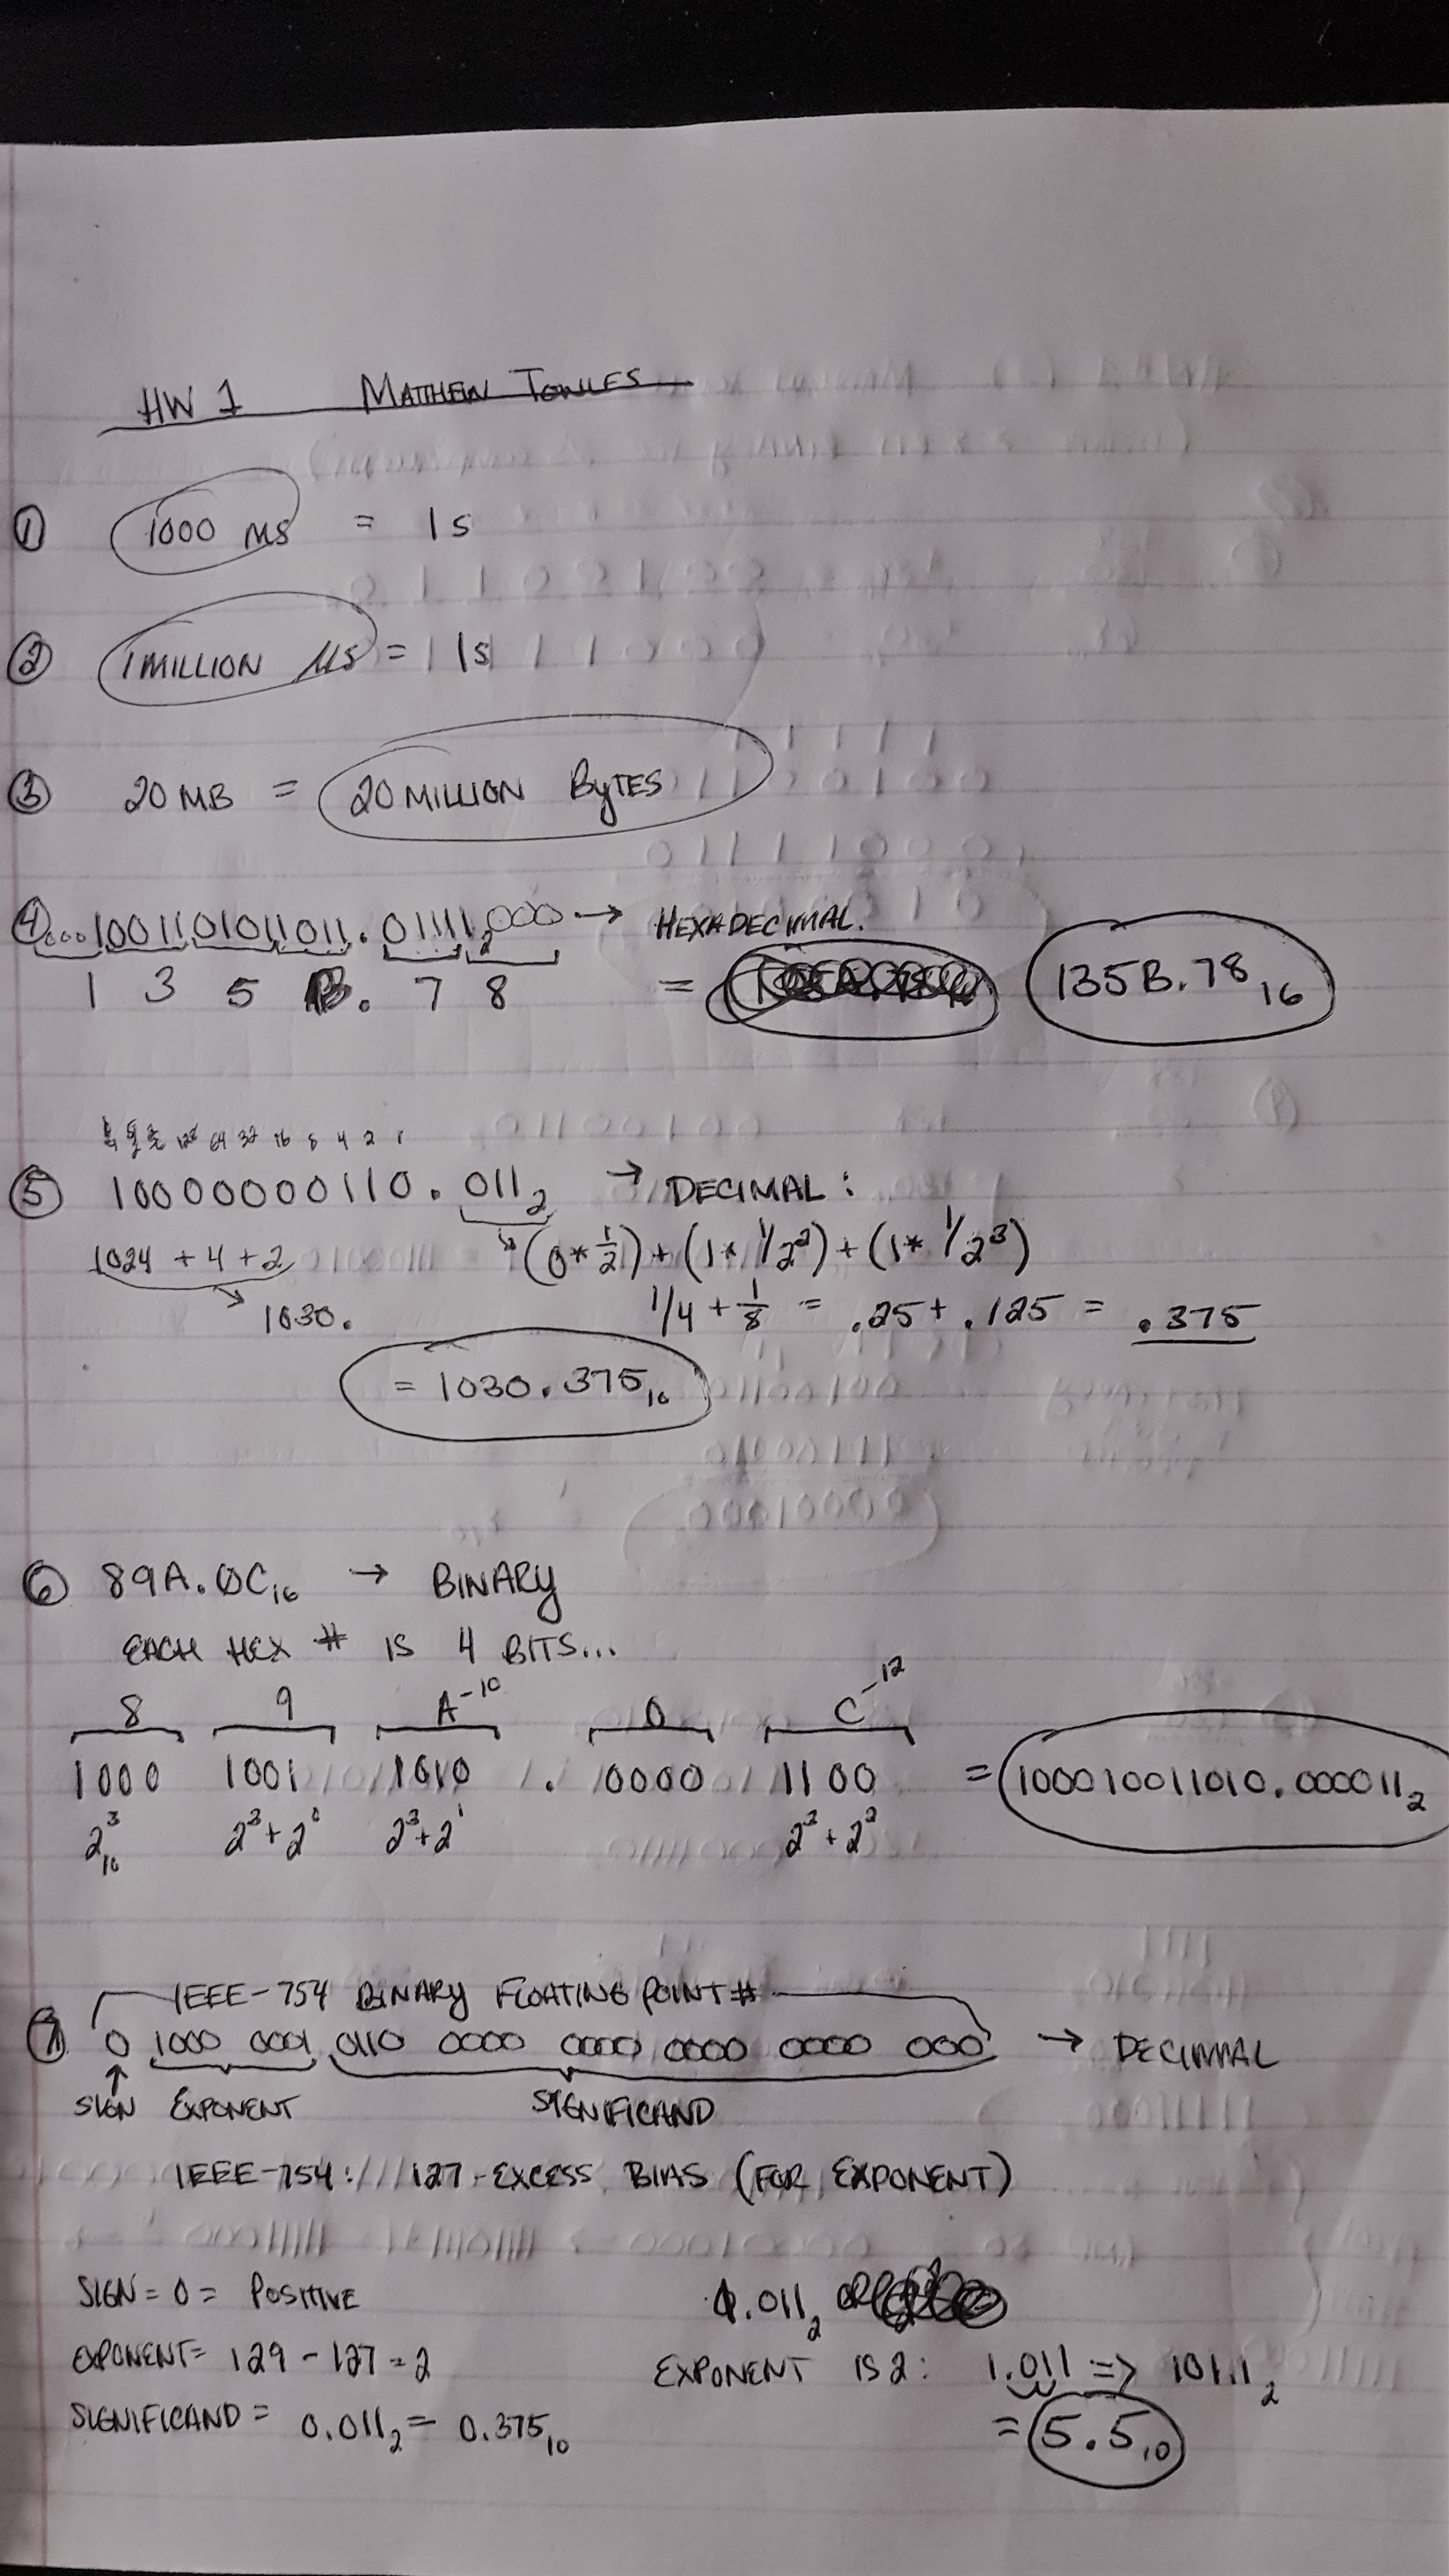 HW 1 MATTHEW TOWLES
① 1000 MS = 1s
② 1 MILLION µs = 1s
③ 20 MB = 20 MILLION BYTES
④ 0001001101011011.01111000 → HEXADECIMAL.
1 3 5 B. 7 8 = 135B.78₁₆
128 64 32 16 8 4 2 1
⑤ 10000000110.011₂ → DECIMAL:
1024 + 4 + 2 (0*1/2)+(1*1/2²)+(1*1/2³)
1030. 1/4 + 1/8 = .25+.125 = .375
= 1030.375₁₀
⑥ 89A.0C₁₆ → BINARY
EACH HEX # IS 4 BITS...
8 9 A-10 0 C-12
1000 1001 1010 . 0000 1100 = 100010011010.000011₂
2³₁₀ 2³+2⁰ 2³+2¹ 2³+2²
IEEE-754 BINARY FLOATING POINT #
⑦ 0 1000 0001 0110 0000 0000 0000 0000 000 → DECIMAL
SIGN EXPONENT SIGNIFICAND
IEEE-754: 127-EXCESS BIAS (FOR EXPONENT)
SIGN = 0 = POSITIVE 1.011₂
EXPONENT= 129 - 127 = 2 EXPONENT IS 2: 1.011 => 101.1₂
SIGNIFICAND = 0.011₂ = 0.375₁₀ = 5.5₁₀